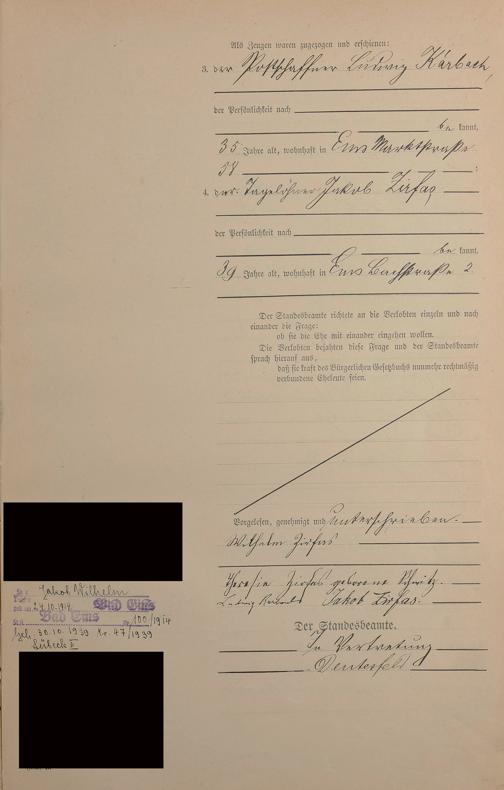 Als Zeugen waren zugezogen und erschienen:
3. der Postschaffner Ludwig Karbach,
der Persönlichkeit nach
be kannt,
35 Jahre alt, wohnhaft in Ems Marktstraße
58 ;
4. der Tagelöhner Jakob Zirfas
der Persönlichkeit nach
be kannt,
39 Jahre alt, wohnhaft in Ems Bachstraße 2
Der Standesbeamte richtete an die Verlobten einzeln und nach
einander die Frage:
ob sie die Ehe mit einander eingehen wollen.
Die Verlobten bejahten diese Frage und der Standesbeamte
sprach hierauf aus,
daß sie kraft des Bürgerlichen Gesetzbuchs nunmehr rechtmäßig
verbundene Eheleute seien.
Vorgelesen, genehmigt und unterschrieben.
Wilhelm Zirfas
Theresia Zirfas geborene
Ludwig Jakob Zirfas.
Der Standesbeamte.
In Vertretung
Jakob Wilhelm
24.10.1914 Bad Ems
Bad Ems 100/1914
30.10.1939 Nr. 47/1939
Lübeck II